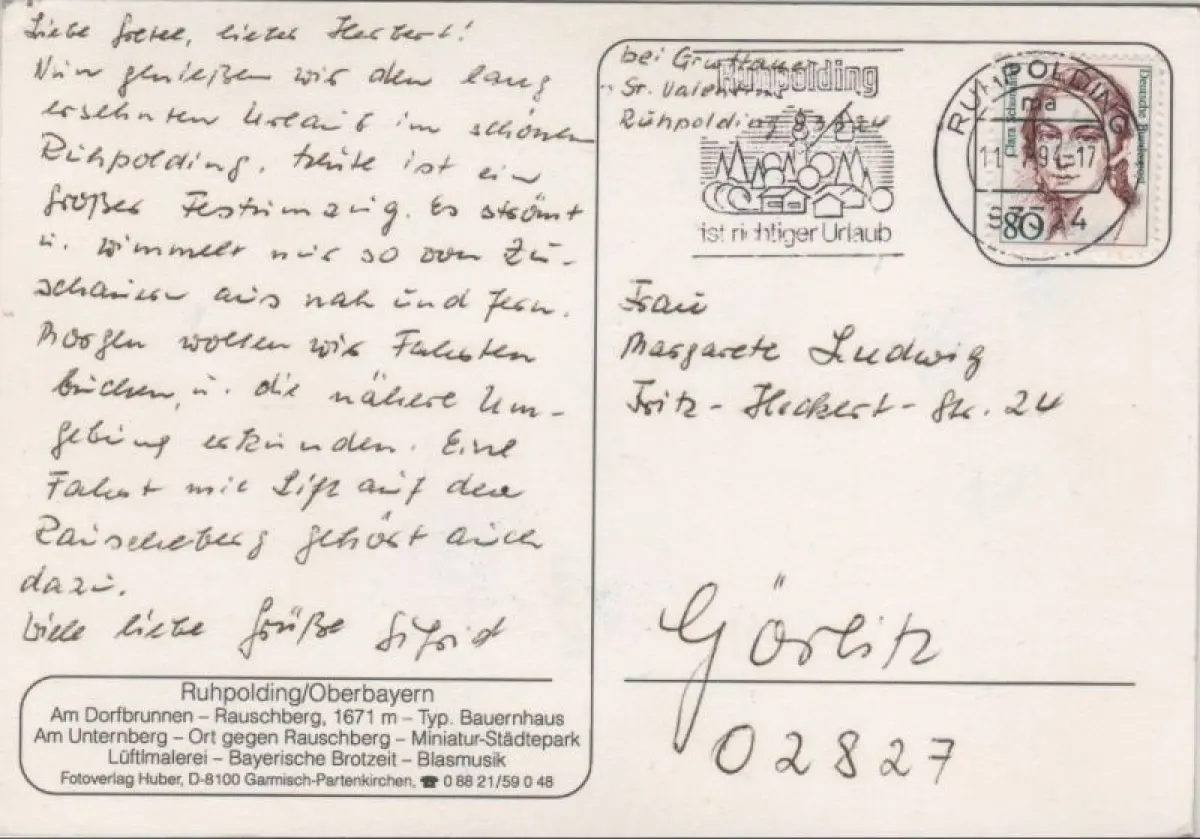 Liebe Gretel, lieber Herbert!
Nun genießen wir den lang
ersehnten Urlaub im schönen
Ruhpolding. Heute ist ein
großer Festumzug. Es strömt
u. wimmelt nur so von Zu-
schauern aus nah und fern.
Morgen wollen wir Fahrten
buchen u. die nähere Um-
gebung erkunden. Eine
Fahrt mit Lift auf den
Rauscheberg gehört auch
dazu.
Viele liebe Grüße Sigrid
Ruhpolding/Oberbayern
Am Dorfbrunnen – Rauschberg, 1671 m – Typ. Bauernhaus
Am Unternberg – Ort gegen Rauschberg – Miniatur-Städtepark
Lüftlmalerei – Bayerische Brotzeit – Blasmusik
Fotoverlag Huber, D-8100 Garmisch-Partenkirchen, ☎ 0 88 21/59 0 48
bei
St.
Ruhpolding 83324
Ruhpolding
ist richtiger Urlaub
RUHPOLDING
ma
83324
Clara Schumann
Deutsche Bundespost
80
Frau
Margarete Ludwig
Fritz-Heckert-Str. 24
Görlitz
02827